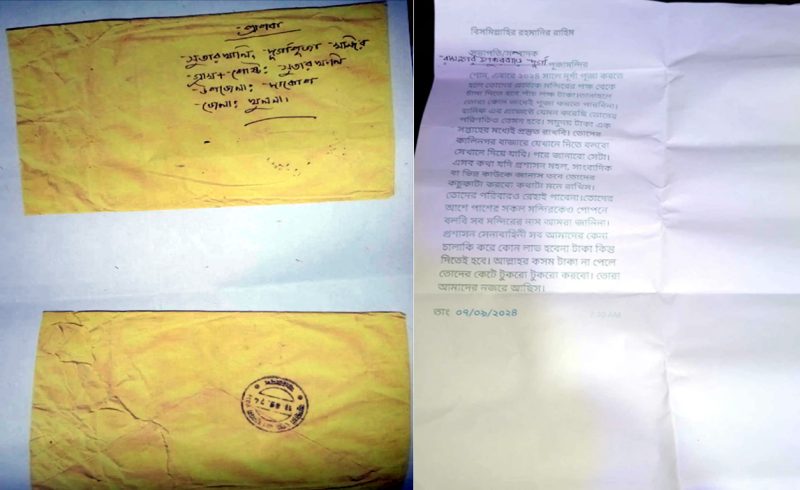 প্রাপক
সুতারখালি, দুর্গাপূজা মন্দির
গ্রাম+ পোষ্ট: সুতারখালি
উপজেলা: দাকোপ
জেলা: খুলনা।
বিসমিল্লাহির রহমানির রাহিম
সভাপতি/সম্পাদক
দূর্গা পূজামন্দির
শোন, এবারে ২০২৪ সালে দূর্গা পূজা করতে
হলে তোদের প্রত্যেক মন্দিরের পক্ষ থেকে
চাদা দিতে হবে পাঁচ লক্ষ টাকা। তানাহলে
তোরা কোন ভাবেই পূজা করতে পারবিনা।
পরিণতিও তেমন হবে। সমুদয় টাকা এক
সপ্তাহের মধ্যেই প্রস্তুত রাখবি। তোদের
কালিনগর বাজারে যেখানে দিতে বলবো
সেখানে দিয়ে যাবি। পরে জানাবো সেটা।
এসব কথা যদি প্রশাসন মহল, সাংবাদিক
বা ভিন্ন কাউকে জানাস তবে তোদের
কচুকাটা করবো কথাটা মনে রাখিস।
তোদের পরিবারও রেহাই পাবেনা।তোদের
আশে পাশের সকল মন্দিরকেও গোপনে
বলবি সব মন্দিরের নাম আমরা জানিনা।
প্রশাসন সেনাবাহিনী সব আমাদের কেনা
চালাকি করে কোন লাভ হবেনা টাকা কিন্তু
দিতেই হবে। আল্লাহর কসম টাকা না পেলে
তোদের কেটে টুকরো টুকরো করবো। তোরা
আমাদের নজরে আছিস।
তাং ০৭/০৯/২০২৪